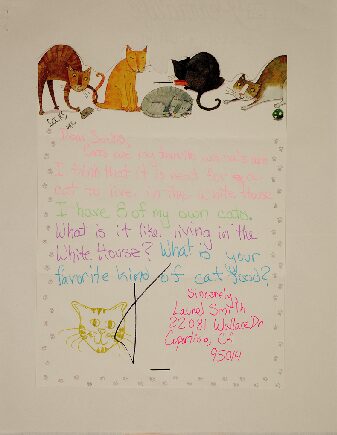 Socks
Dear Socks,
Cats are my favorite animals and
I think that it is neat for a
cat to live in the White House
I have 8 of my own cats.
What is it like living in the
White House? What is your
favorite kind of cat food?
Sincerely,
Laurel Smith
22081 Wallace Dr
Cupertino, CA
95014